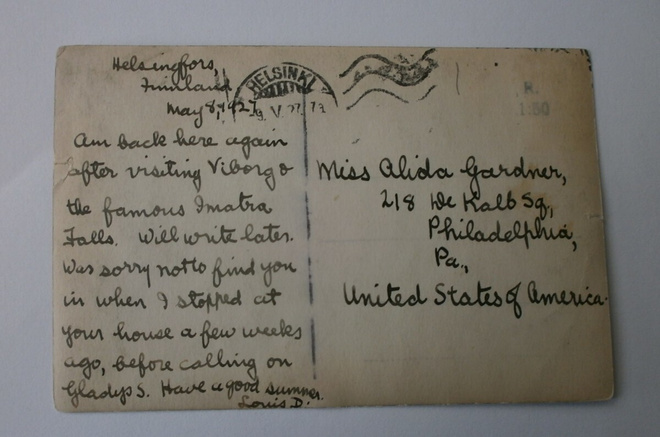 Helsingfors,
Finnland
May 8, 1927
HELSINKI
9.V.27.
Am back here again
after visiting Viborg &
the famous Imatra
Falls. Will write later.
Was sorry not to find you
in when I stopped at
your house a few weeks
ago, before calling on
Gladys S. Have a good summer.
Louis D.
R.
1:50
Miss Alida Gardner,
218 De Kalb Sq,
Philadelphia,
Pa.,
United States of America.